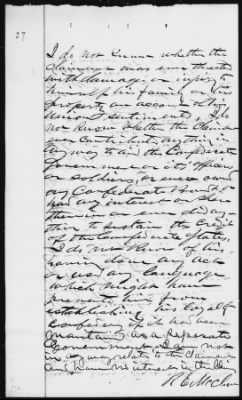 27
I do not know whether the
claimant was ever threatened
with damage or injury to
himself his family or his
property on account of his
Union sentiments, I do
not know whether the claimant
ever contributed anything
to aid the Confederate
Government its officers
or soldiers, or ever owned
any Confederate bonds or
had any interest or share
therein or ever did any
thing to sustain the credit
of the Confederate States,
I do not know of his
having done any act
or used any language
which might have
prevented him from
establishing his loyalty
Confederacy if it had been
maintained as a separate
Government I am not
in any way related to the claimant
and have no interest in the
R E McC